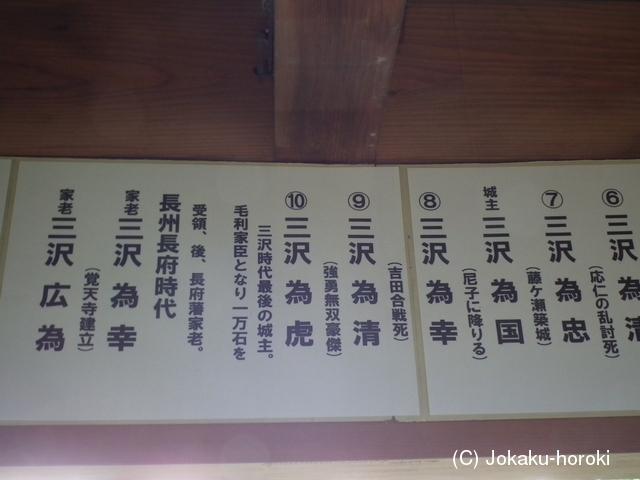 ⑥ 三沢 為
(応仁の乱討死)
⑦ 三沢 為忠
(藤ケ瀬築城)
城主 三沢 為国
(尼子に降りる)
⑧ 三沢 為幸
(吉田合戦死)
⑨ 三沢 為清
(強勇無双豪傑)
⑩ 三沢 為虎
三沢時代最後の城主。
毛利家臣となり一万石を
受領、後、長府藩家老。
長州長府時代
家老 三沢 為幸
(覚天寺建立)
家老 三沢 広為
(C) Jokaku-horoki